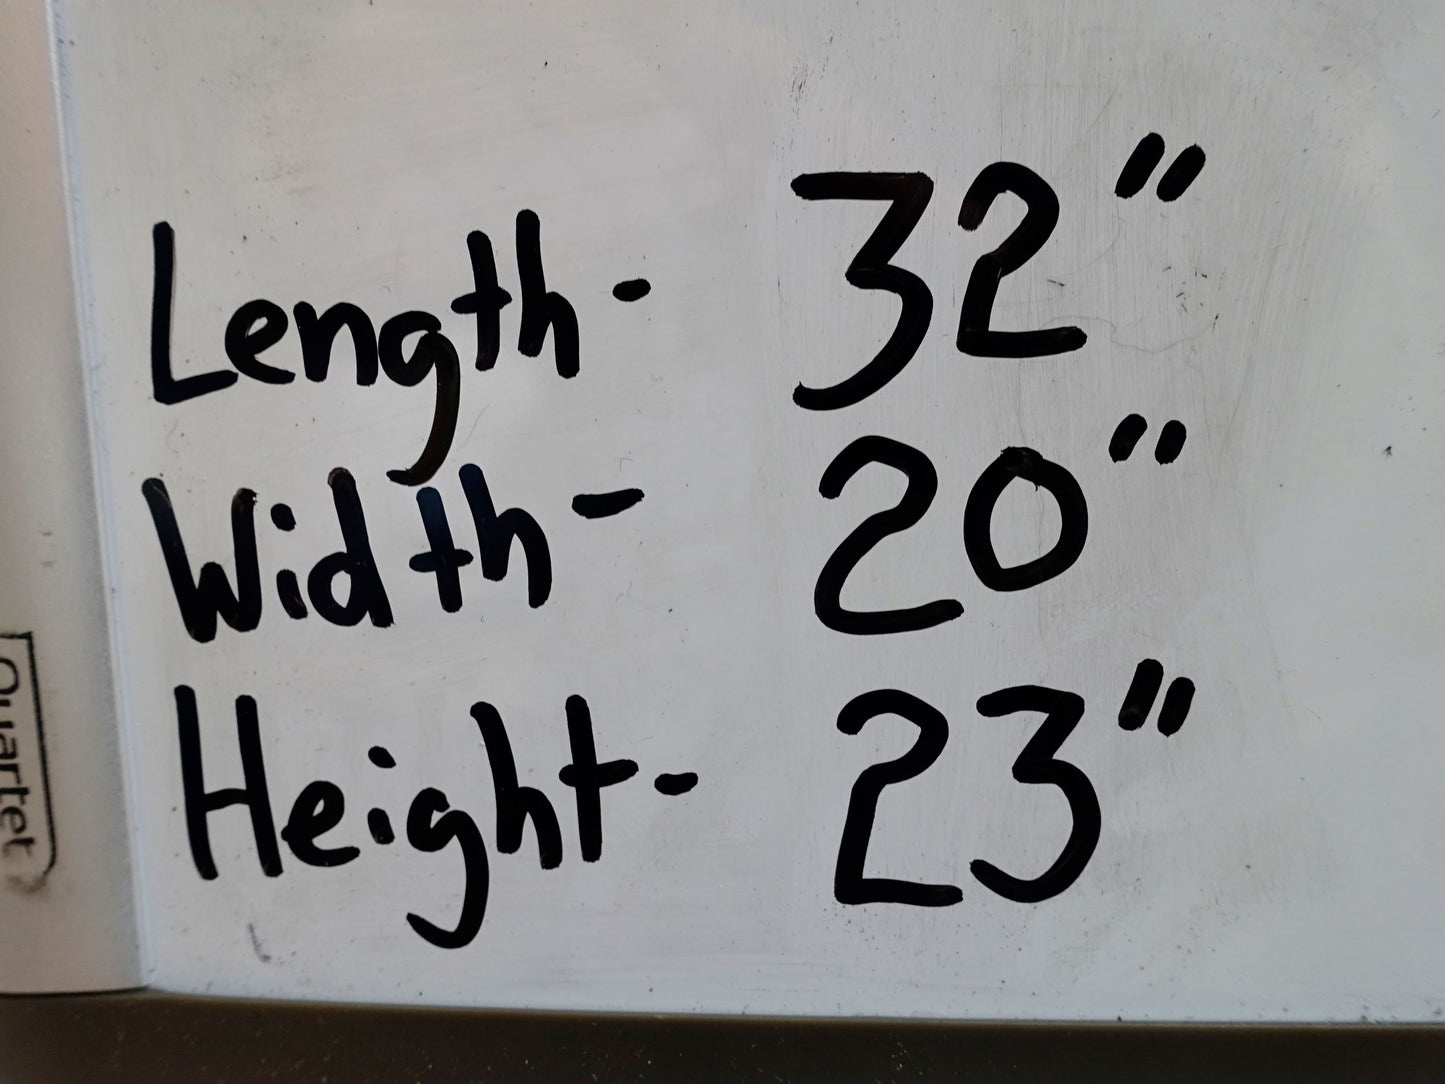 Length - 32"
Width - 20"
Height - 23"
Quartet